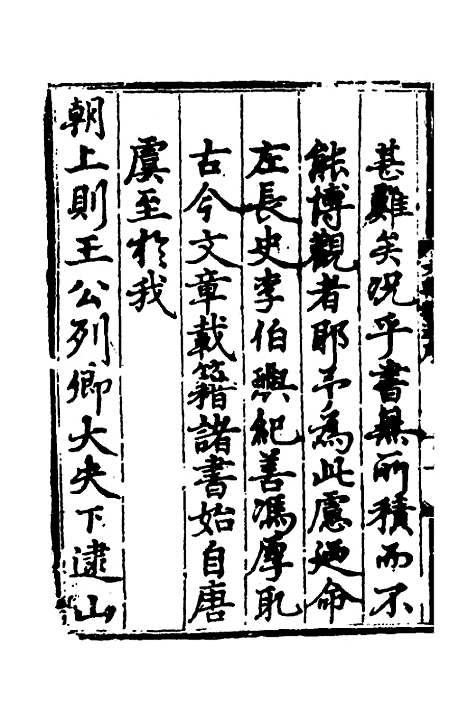 甚難矣况乎書無所積而不
能博觀者耶予為此慮迺命
左長史李伯璵紀善馮厚取
古今文章載籍諸書始自唐
虞至於我
朝上則王公列卿大夫下逮山